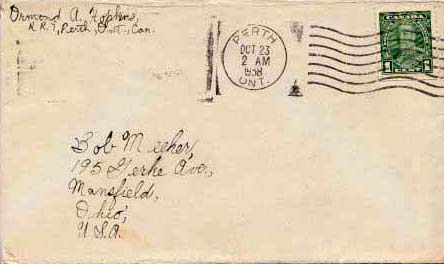 Ormond A. Hopkins,
R.R.7, Perth, Ont., Can.
PERTH
OCT 23
2 AM
1938
ONT.
CANADA
1 1
Bob Meeher,
195 Gerke Ave.,
Mansfield,
Ohio,
U.S.A.